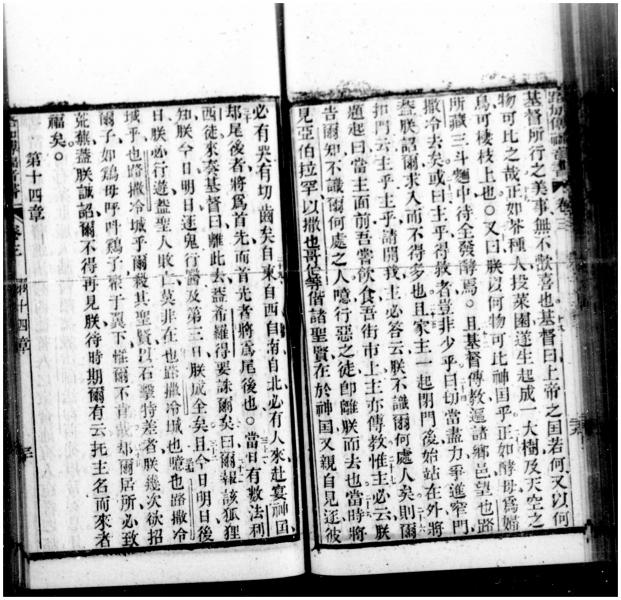 路加傳福音書 卷三
基督所行之美事無不歡喜也基督曰上帝之国若何又以何
物可比之哉正如芥種人投菜園遂生起成一大樹及天空之
鳥可棲枝上也又曰朕以何物可比神国乎正如酵母爲婦
所藏三斗麵中待全發酵焉且基督傳教逼諸鄉邑望也路
撒冷去矣或曰主乎得救者豈非少乎曰切當盡力爭進窄門
盖朕詔爾求入而不得多也且家主一起閉門後始站在外將
扣門云主乎主乎請開我主必答云朕不識爾何處人矣則爾
趨起曰當主面前吾嘗飲食吾街市上主亦傳教惟主必云朕
告爾知不識爾何處之人噫行惡之徒卽離朕而去也當時將
見亞伯拉罕以撒也哥伯等偕諸聖賢在於神国又親自見逐彼
必有哭有切齒矣自東自西自南自北必有人來赴宴神国
却尾後者將爲首先而首先者將爲尾後也當日有数法利
西徒來奏基督曰離此去盖希羅得要誅爾矣曰爾報該狐狸
知朕今日明日逐鬼行醫及第三日朕成全矣且今日明日後
日朕必行遊盖聖人敗亡莫非在也路撒冷城也噫也路撒冷
城乎也路撒冷城乎爾殺其聖賢以石擊特差者朕幾次欲招
爾子如鷄母呼吽鷄子聚于翼下惟爾不肯哉却爾居所必致
荒蕪盖朕誠詔爾不得再見朕待時期爾有云托主名而來者
福矣
第十四章
卷三 第十四章